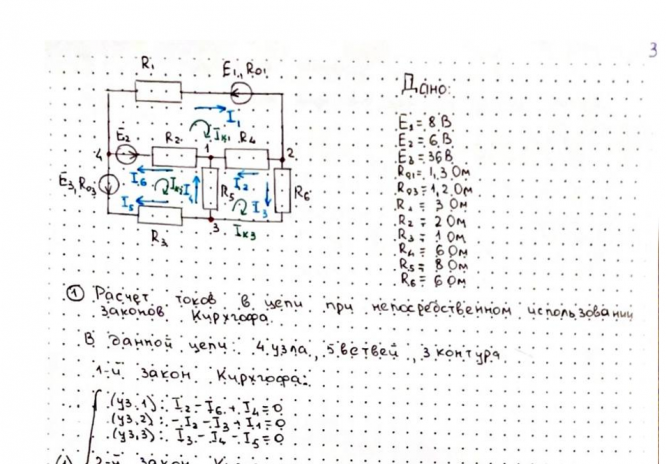 3
R1
E1, R01
I1
Iк1
E2
R2
1
R4
4
2
I6
I2
E3, R03
I5
R5
I3
R6
R3
3
Iк3
Дано:
E1 = 8 В
E2 = 6 В
E3 = 36 В
R01 = 1,3 Ом
R03 = 1,2 Ом
R1 = 3 Ом
R2 = 2 Ом
R3 = 1 Ом
R4 = 6 Ом
R5 = 8 Ом
R6 = 6 Ом
① Расчет токов в цепи при непосредственном использовании
законов Кирхгофа.
В данной цепи: 4 узла, 5 ветвей, 3 контура
1-й закон Кирхгофа:
(уз.1): I2 - I6 + I4 = 0
(уз.2): -I2 - I3 + I1 = 0
(уз.3): I3 - I4 - I5 = 0
2-й закон